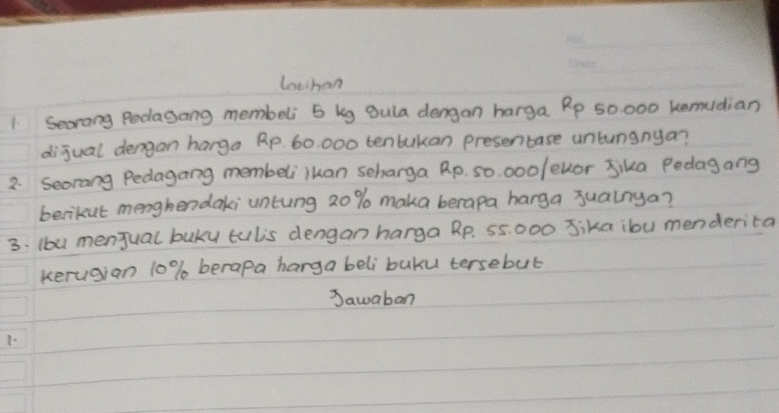 Latihan
1. Seorang Pedagang membeli 5 kg gula dengan harga Rp 50.000 kemudian
dijual dengan harga Rp. 60.000 tentukan presentase untungnya?
2. Seorang Pedagang membeli ikan seharga Rp. 50.000/ekor Jika Pedagang
berikut menghendaki untung 20% maka berapa harga jualnya?
3. Ibu menjual buku tulis dengan harga Rp. 55.000 Jika ibu menderita
kerugian 10% berapa harga beli buku tersebut
Jawaban
1.